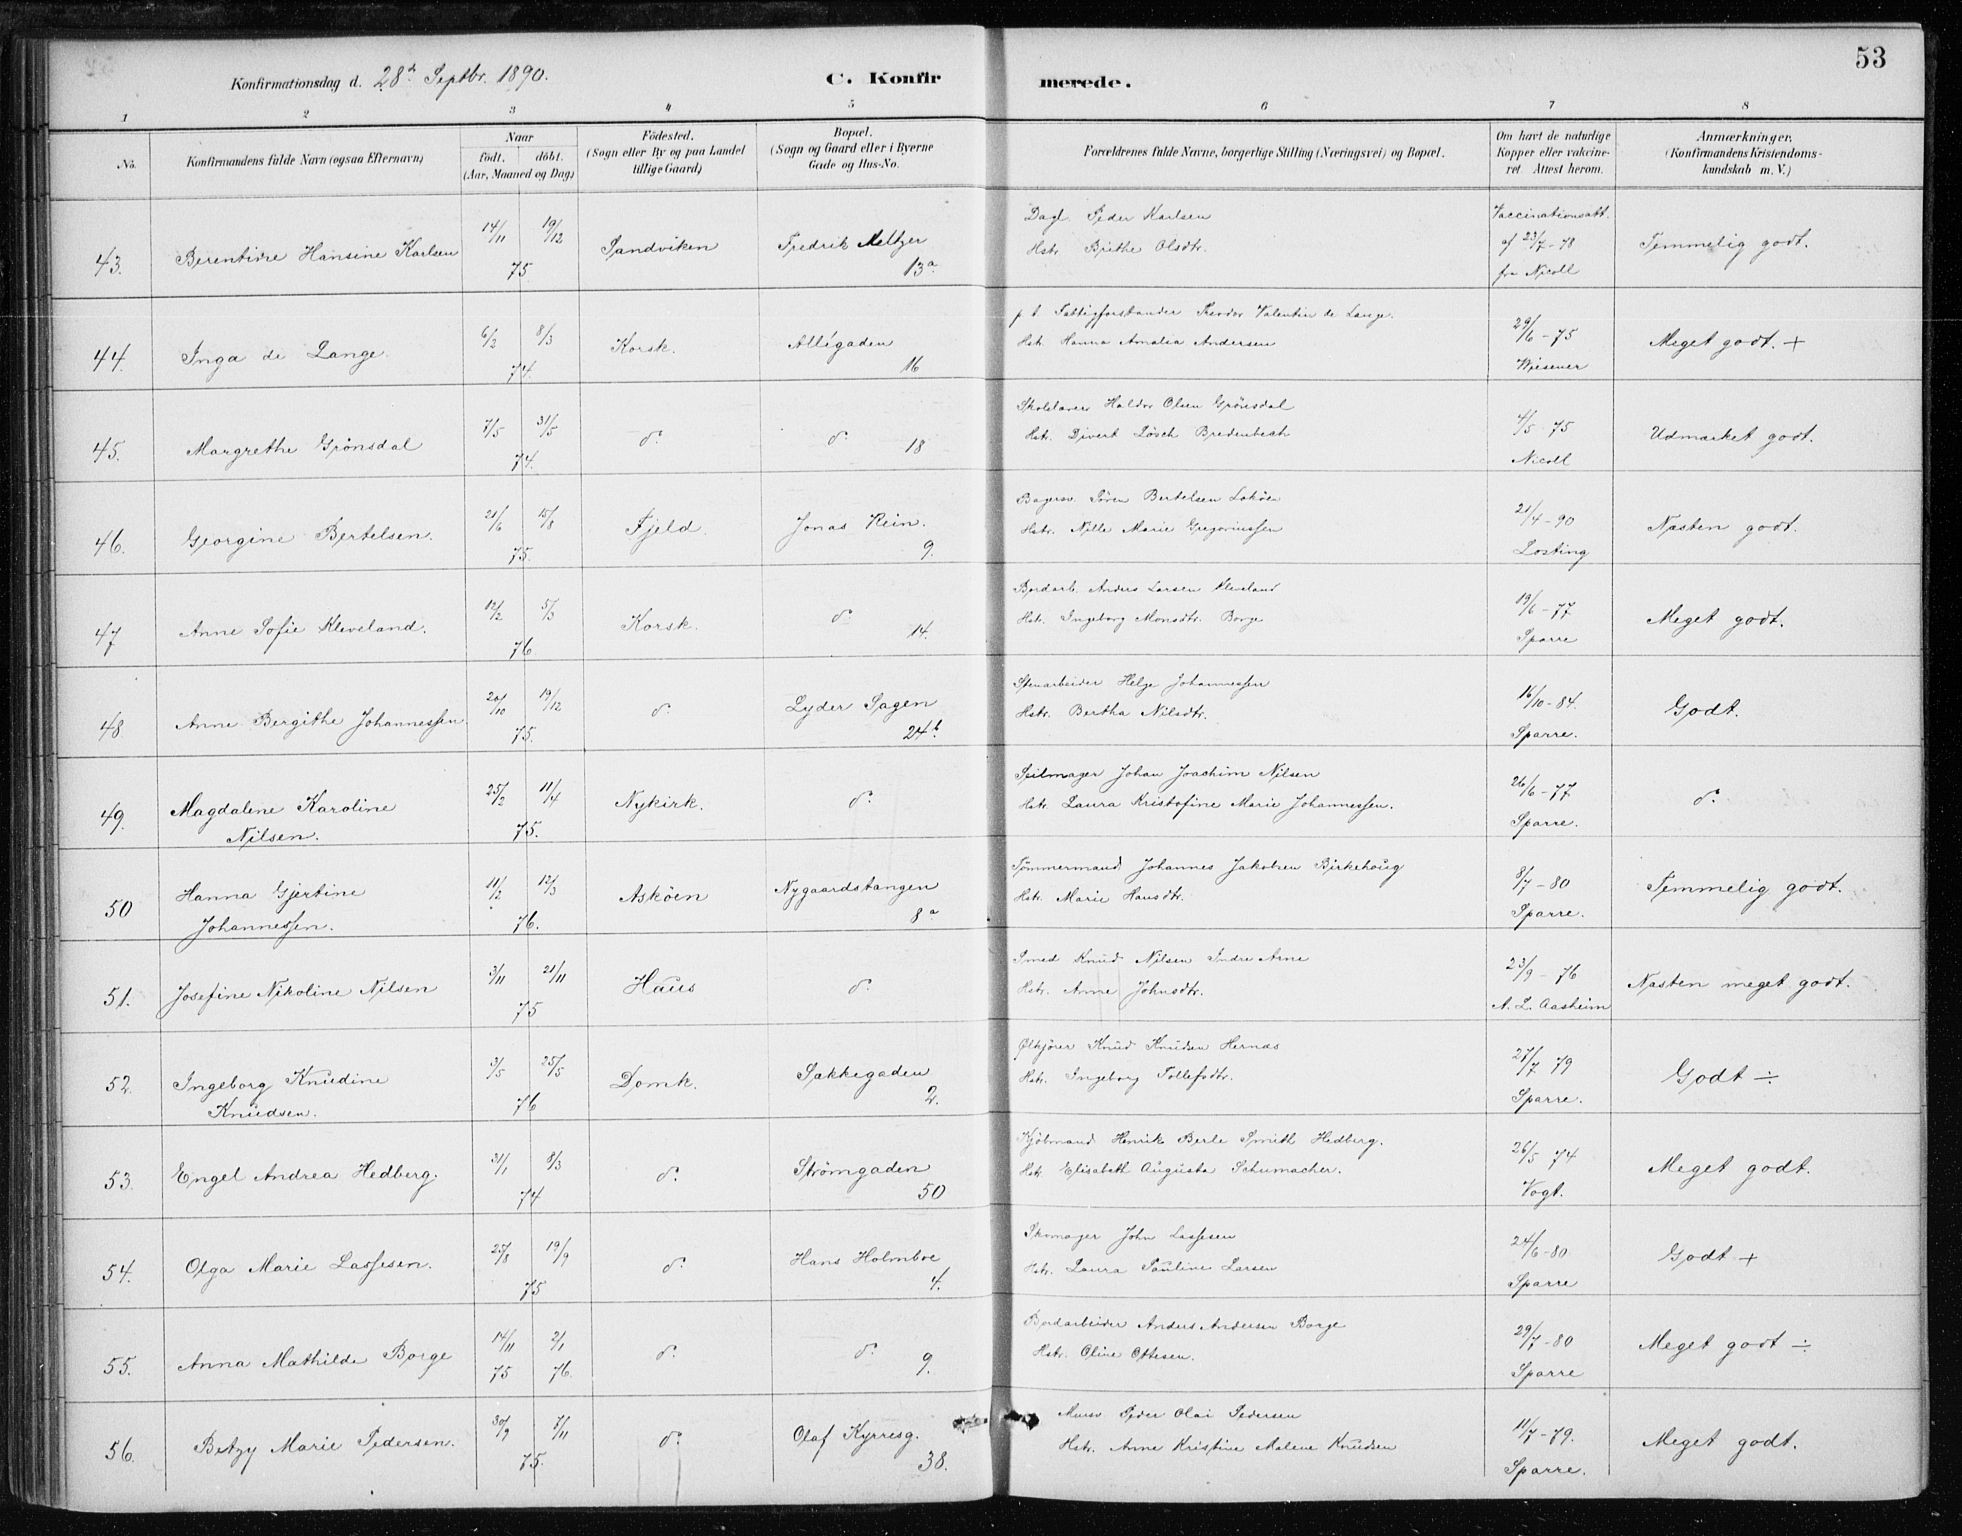 53
Konfirmationsdag d. 28de Septbr. 1890.
C. Konfirmerede.
1 2 3 4 5 6 7 8
No.
Konfirmandens fulde Navn (ogsaa Efternavn)
Naar
födt. döbt.
(Aar, Maaned og Dag)
Födested.
(Sogn eller By og paa Landet
tillige Gaard)
Bopæl.
(Sogn og Gaard eller i Byerne
Gade og Hus-No.
Forældrenes fulde Navne, borgerlige Stilling (Næringsvei) og Bopæl.
Om havt de naturlige
Kopper eller vakcine-
ret. Attest herom.
Anmærkninger.
(Konfirmandens Kristendoms-
kundskab m. V.)
43. Berentine Hansine Karlsen 14/11 19/12 75 Sandviken Fredrik Meltzer 13a
Dagl. Peder Karlsen
Hstr. Brithe Olsdtr.
Vaccinationsatt.
af 23/7-78
fra Nicoll
Temmelig godt.
44. Inga de Lange. 6/2 8/3 74. Korsk. Allégaden 16
p t Fattigforstander Teodor Valentin de Lange.
Hstr. Hanna Amalia Andersen
29/6-75
Wiesener
Meget godt. +
45. Margrethe Grönsdal 7/5 31/5 74. do do 18
Skolelærer Haldor Olsen Grönsdal
Hstr. Divert Lösch Bredenbech
4/5-75
Nicoll
Udmærket godt.
46. Georgine Bertelsen. 21/6 15/8 75. Fjeld. Jonas Rein. 9.
Bagersv. Sören Bertelsen Loköen
Hstr. Nille Marie Gregoriussen
21/4-90
Losting
Næsten godt.
47 Anne Sofie Kleveland. 12/2 5/3 76 Korsk. do 14.
Bordarb. Anders Larsen Kleveland
Hstr. Ingeborg Monsdtr. Borge
19/6-77
Sparre
Meget godt.
48. Anne Bergithe Johannessen. 20/10 19/12 75. do Lyder Sagen 24b.
Stenarbeider Helge Johannessen
Hstr. Bertha Nilsdtr.
16/10-84.
Sparre.
Godt.
49. Magdalene Karoline
Nilsen. 25/2 11/4 75. Nykirk. do
Seilmager Johan Joachim Nilsen
Hstr. Laura Kristofine Marie Johannessen.
26/6-77
Sparre.
do
50 Hanna Gjertine
Johannessen. 11/2 12/3 76. Asköen Nygaardstangen 8a
Tömmermand Johannes Jakobsen Birkehoug
Hstr. Marie Hansdtr.
8/7-80
Sparre.
Temmelig godt.
51. Josefine Nikoline Nilsen 3/11 21/11 75 Haus do
Smed Knud Nilsen Indre Arne
Hstr. Anne Johnsdtr.
23/9-76
A. L. Aasheim
Næsten meget godt.
52. Ingeborg Knudine
Knudsen. 3/5 25/5 76 Domk. Sækkegaden 2.
Ølkjörer Knud Knudsen Hernæs
Hstr. Ingeborg Tollefsdtr.
27/7 79
Sparre.
Godt ÷
53. Engel Andrea Hedberg. 31/1 8/3 74 do Strömgaden 50
Kjöbmand Henrik Berle Smith Hedberg.
Hstr. Elisabeth Augusta Schumacher.
26/5 74
Vogt.
Meget godt.
54. Olga Marie Lassesen. 25/8 19/9 75 do Hans Holmboe 4.
Skomager John Lassesen
Hstr. Laura Pauline Larsen
24/6-80
Sparre
Godt +
55. Anna Mathilde Borge 14/11 75 2/1 76. do do 9.
Bordarbeider Anders Andersen Borge
Hstr. Oline Ottesen.
29/7-80
Sparre
Meget godt ÷
56. Betzy Marie Pedersen. 30/9 7/11 75. do Olaf Kyrresg. 38.
Mursv. Peder Olai Pedersen
Hstr. Anne Kristine Malene Knudsen
11/7-79.
Sparre.
Meget godt.